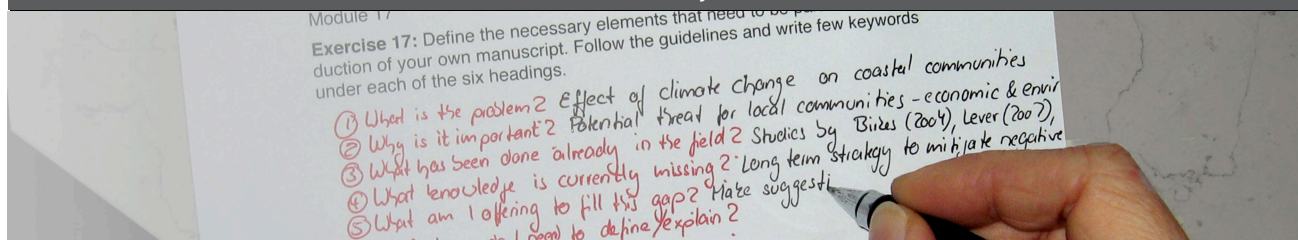 Module 17
Exercise 17: Define the necessary elements that need to be
duction of your own manuscript. Follow the guidelines and write few keywords
under each of the six headings.
① What is the problem? Effect of climate change on coastal communities
② Why is it important? Potential threat for local communities - economic & envir
③ What has been done already in the field? Studies by (2004), Lever (2007),
④ What knowledge is currently missing? Long term strategy to mitigate negative
⑤ What am I offering to fill this gap? Make suggesti
need to define/explain?